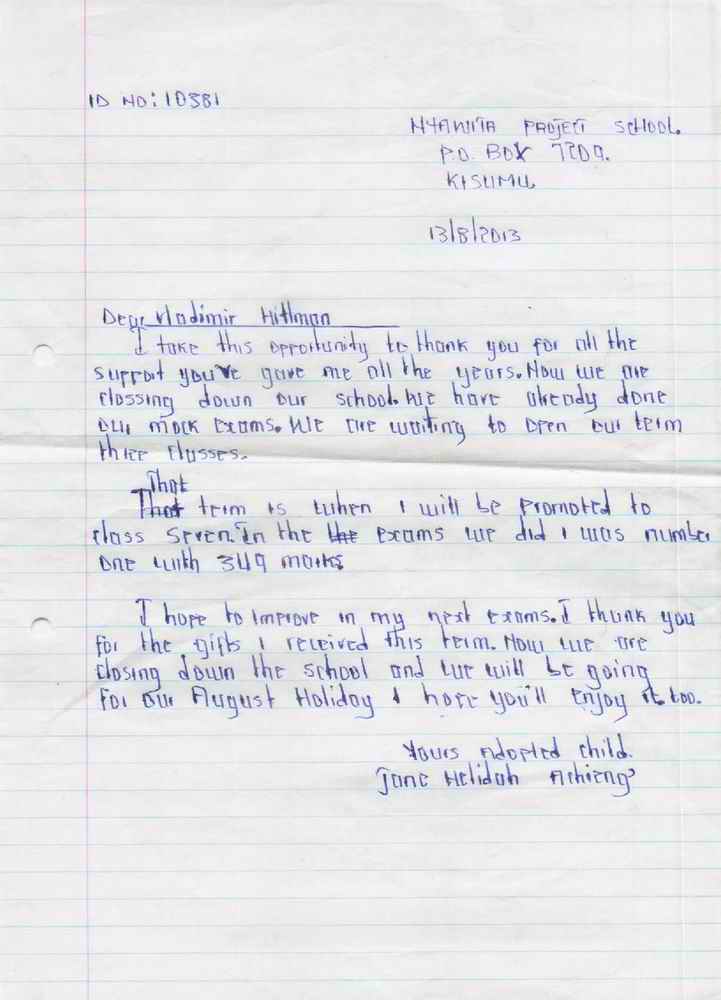 ID NO: 10381
PROJECT SCHOOL.
P.O. BOX
KISUMU.
13/8/2013
Dear Vladimir Hitlman
I take this opportunity to thank you for all the
support you've gave me all the years. Now we are
clossing down our school. We have already done
our mock exams. We are waiting to open our term
three classes.
That
That term is when I will be promoted to
class seven. In the the exams we did I was number
one with 349 marks
I hope to improve in my next exams. I thank you
for the gifts I received this term. Now we are
closing down the school and we will be going
for our August Holiday I hope you'll enjoy it too.
Yours Adopted child.
Jane Helidah Achieng'